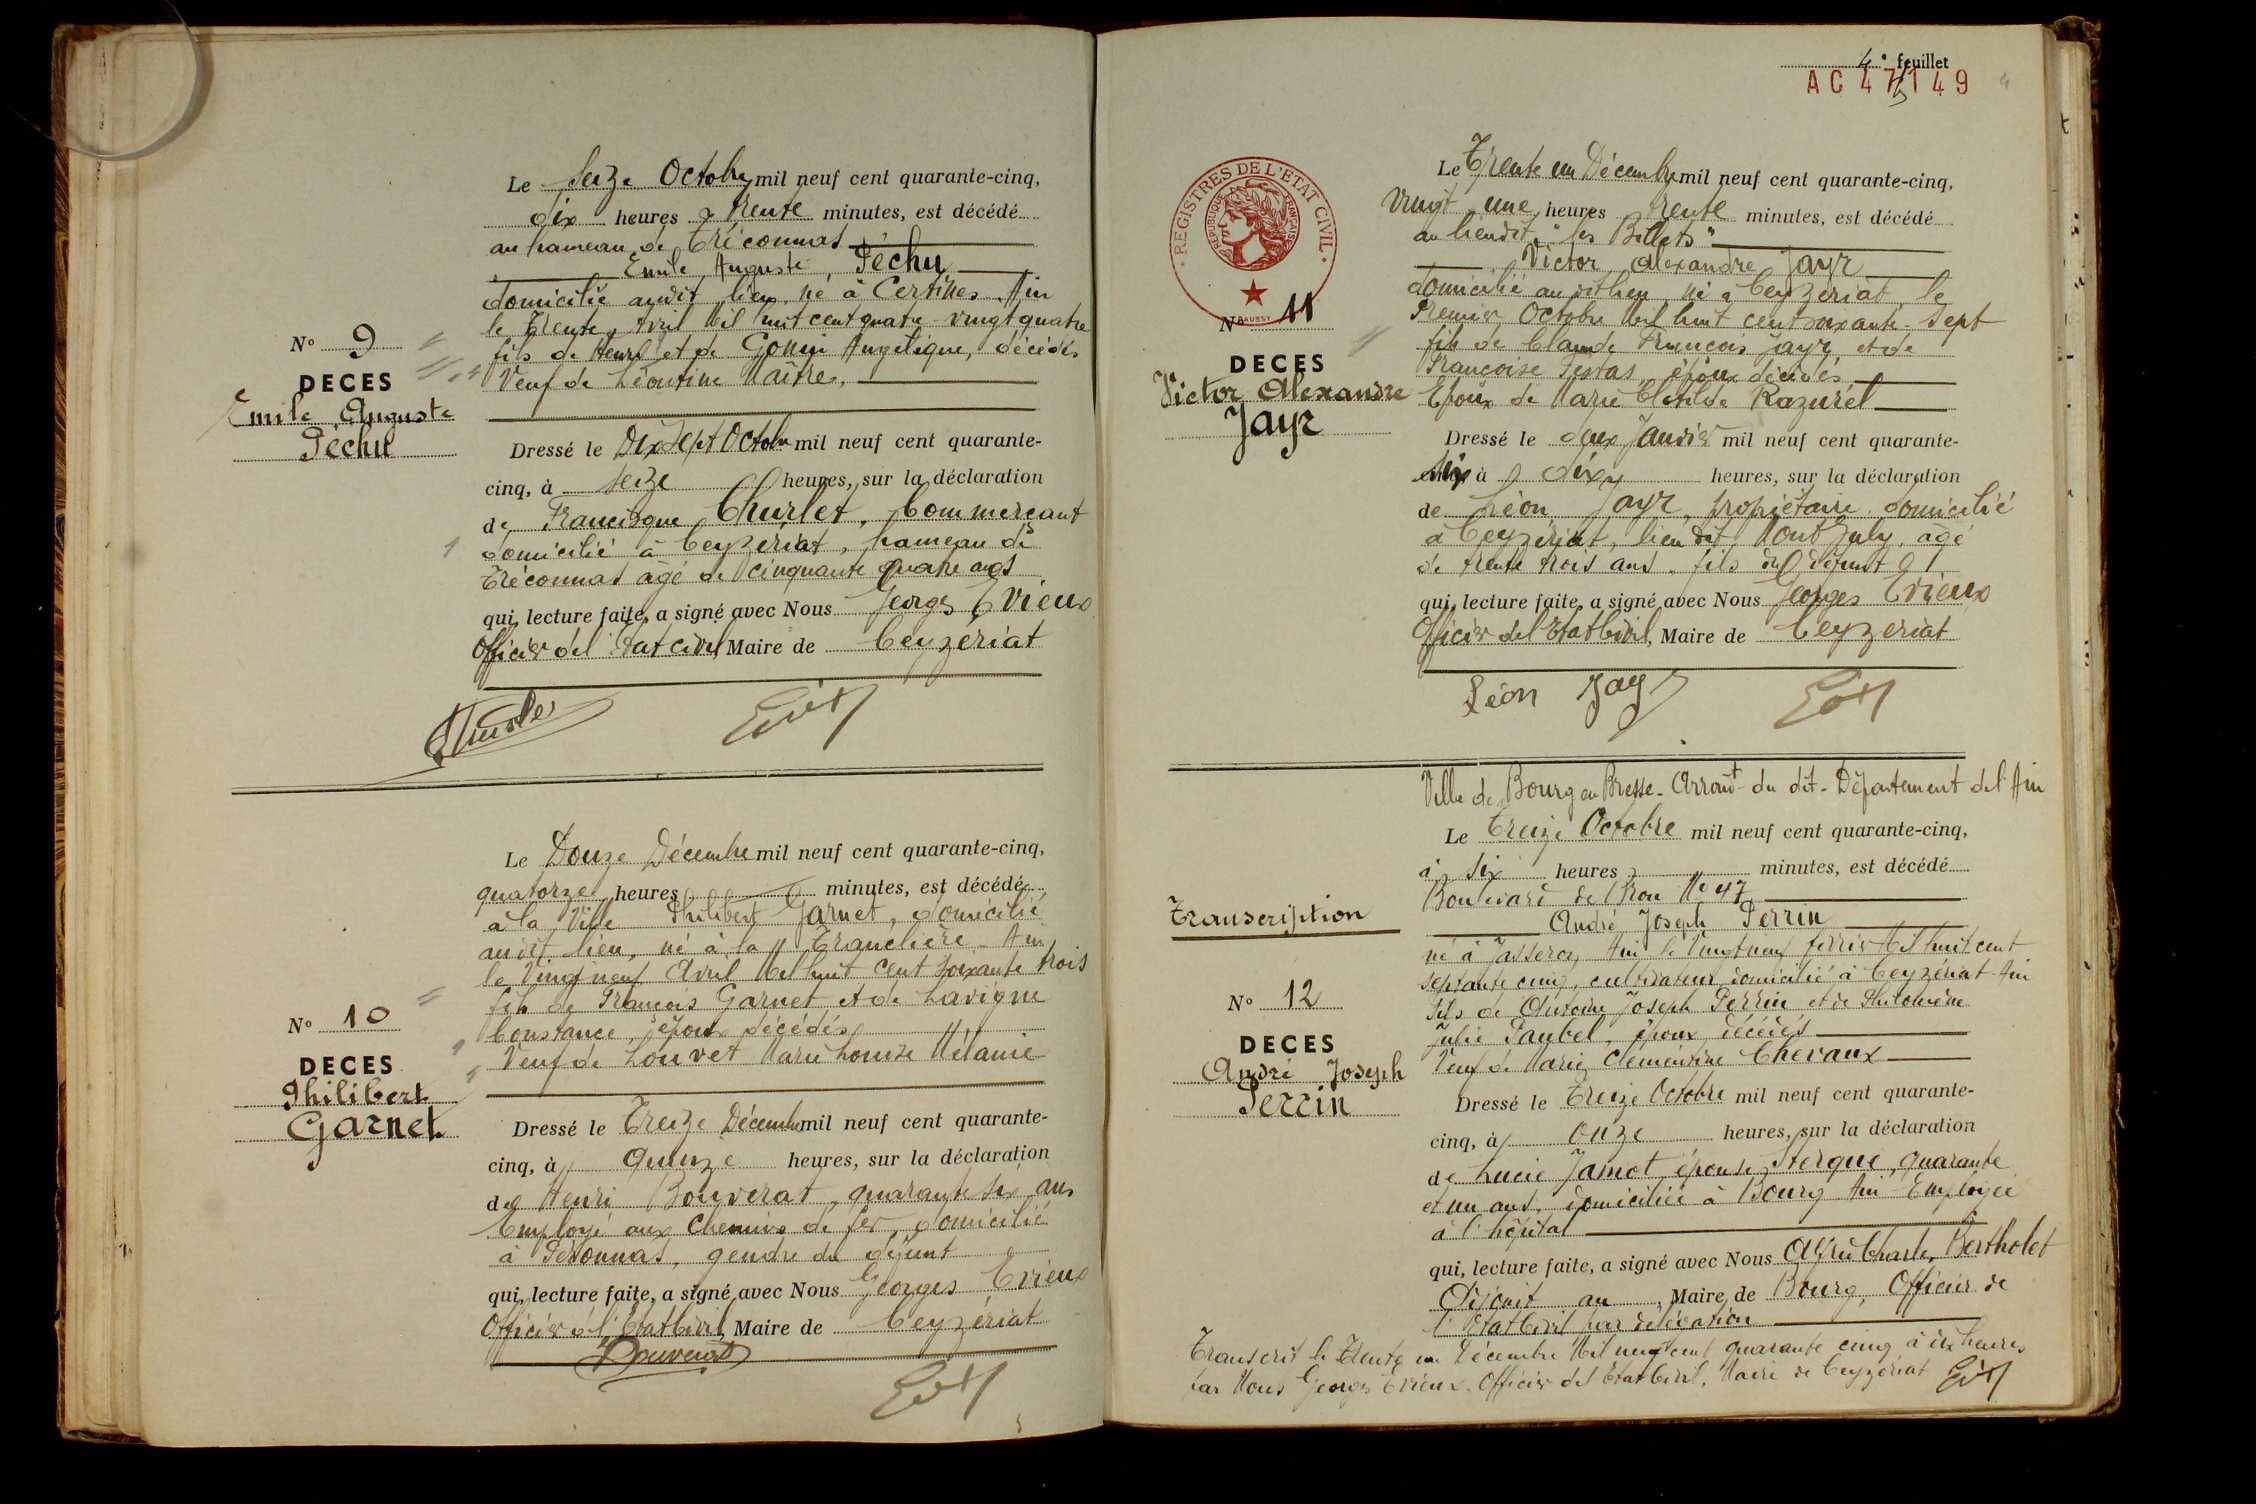 Le Seize Octobre mil neuf cent quarante-cinq,
dix heures trente minutes, est décédé
au hameau de Tréconnas
Emile Auguste Péchu
domicilié audit lieu, né à Certines Ain
le Trente Avril Mil huit cent quatre-vingt quatre
fils de Henri et de Gonin Angélique, décédés
Veuf de Léontine Maître.
N° 9
DECES
Emile Auguste
Péchu
Dressé le Dix Sept Octobre mil neuf cent quarante-
cinq, à seize heures, sur la déclaration
de Francisque Churlet, Commerçant
domicilié à Ceyzériat, hameau de
Tréconnas âgé de cinquante quatre ans
qui, lecture faite, a signé avec Nous Georges Evieux
Officier de l'Etat civil, Maire de Ceyzériat
Le Douze Décembre mil neuf cent quarante-cinq,
quatorze heures minutes, est décédé
à la Ville Philibert Garnet, domicilié
audit lieu, né à la Tranclière - Ain
le Vingt neuf Avril Mil huit cent soixante trois
fils de François Garnet et de Lavigne
Constance, époux décédés
Veuf de Louvet Marie Louise Mélanie
N° 10
DECES
Philibert
Garnet
Dressé le Treize Décembre mil neuf cent quarante-
cinq, à quinze heures, sur la déclaration
de Henri Bouverat, quarante six ans
Employé aux Chemins de fer, domicilié
à Péronnas, gendre du défunt
qui, lecture faite, a signé avec Nous Georges Evieux
Officier de l'Etat Civil, Maire de Ceyzériat
Bouverat
4e feuillet
AC 47149
REGISTRES DE L'ETAT CIVIL
REPUBLIQUE FRANÇAISE
Le Trente un Décembre mil neuf cent quarante-cinq,
Vingt une heures trente minutes, est décédé
au lieudit "les Billets"
Victor Alexandre Jayr
domicilié audit lieu, né à Ceyzériat, le
Premier Octobre Mil huit cent soixante-sept
fils de Claude François Jayr, et de
Françoise Testas, époux décédés
Epoux de Marie Clotilde Razurel
N° 11
DECES
Victor Alexandre
Jayr
Dressé le deux Janvier mil neuf cent quarante-
six à dix heures, sur la déclaration
de Léon Jayr, propriétaire domicilié
à Ceyzériat, lieu dit Mont July, âgé
de trente trois ans, fils du défunt
qui, lecture faite, a signé avec Nous Georges Evieux
Officier de l'Etat Civil, Maire de Ceyzériat
Léon Jayr
Ville de Bourg en Bresse - Arrondt du dit - Département de l'Ain
Le Treize Octobre mil neuf cent quarante-cinq,
à six heures minutes, est décédé
Boulevard de Brou N° 47
André Joseph Perrin
né à Jasseron, Ain le Vingt neuf février Mil huit cent
septante cinq, cultivateur domicilié à Ceyzériat - Ain
fils de Antoine Joseph Perrin et de Philomène
Julie Paubel, époux décédés
Veuf de Marie Clémentine Chevaux
Transcription
N° 12
DECES
André Joseph
Perrin
Dressé le Treize Octobre mil neuf cent quarante-
cinq, à onze heures, sur la déclaration
de Lucie Jamot épouse Sterque, quarante
et un ans, domiciliée à Bourg Ain Employée
à l'hôpital
qui, lecture faite, a signé avec Nous Alfred Charles Bertholet
Adjoint au Maire de Bourg, Officier de
l'Etat Civil par délégation
Transcrit le Trente un Décembre Mil neuf cent quarante cinq à dix heures
par Nous Georges Evieux, Officier de l'Etat Civil, Maire de Ceyzériat